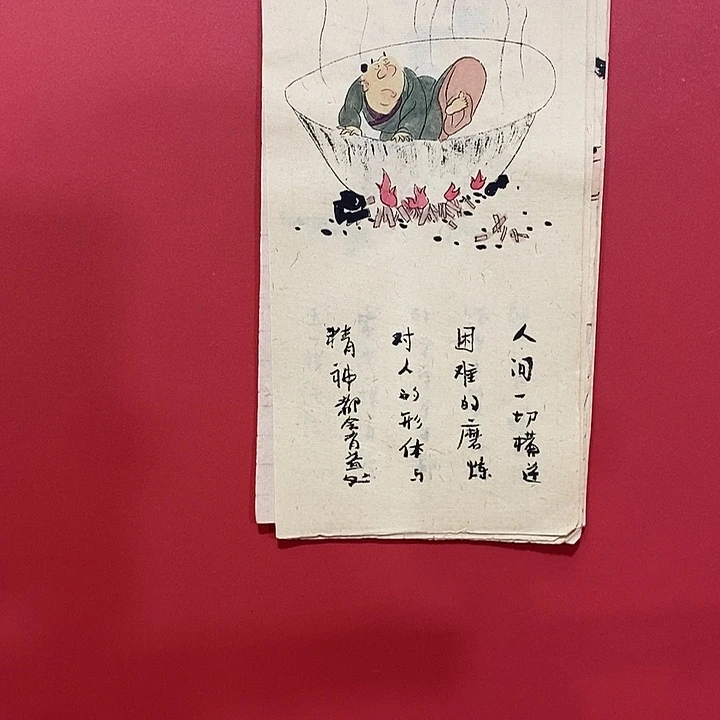 人间一切横逆
困难的磨炼
对人的形体与
精神都会有益处